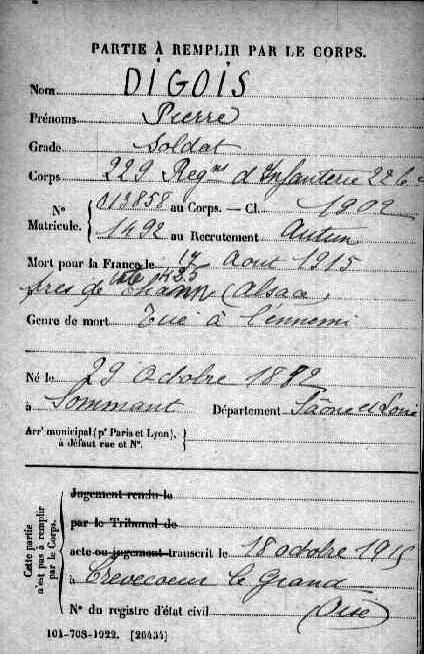 PARTIE À REMPLIR PAR LE CORPS.
Nom DIGOIS
Prénoms Pierre
Grade Soldat
Corps 229 Reg^nt d'Infanterie 22 6^e
N° Matricule. 013858 au Corps. — Cl. 1902
1492 au Recrutement Autun
Mort pour la France le 17 Aout 1915
côte 425
près de Thann (Alsace)
Genre de mort Tué à l'ennemi
Né le 29 octobre 1882
à Sommant Département Saône et Loire
Arr^t municipal (p^r Paris et Lyon),
à défaut rue et N°.
Cette partie n'est pas à remplir par le Corps.
Jugement rendu le
par le Tribunal de
acte ou jugement transcrit le 18 octobre 1915
à Crevecoeur le Grand
N° du registre d'état civil (Oise)
101-708-1922. [26434]